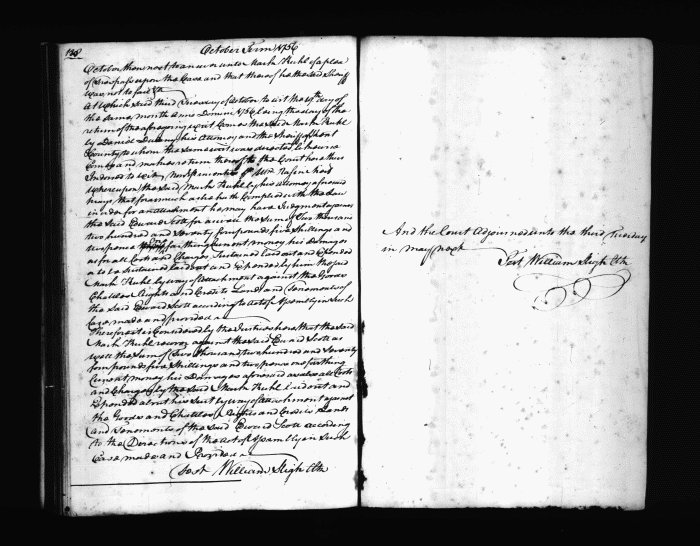 138 October Term 1756
October then next to answer unto Mark Ruhl of a plea
of Trespass upon the Case and that thereof he the said Sheriff
was not to fail &c
At which said third Tuesday of October to wit the 19th day of
the same month Anno Domini 1756 being the day of the
return of the aforegoing writ Comes the said Mark Ruhl
by Daniel his Attorney and the Sheriff of Kent
County to whom the same writ was directed
and makes return thereof to the Court here thus
Indorsed to wit,
Whereupon the said Mark Ruhl by his Attorney aforesaid
prays that forasmuch as he hath Complied with the Law
in order for an attachment he may have Judgment against
the said Edward Scott for as well the Sum of Two thousand
two hundred and Seventy four pounds five Shillings and
two pence farthing Current money his Damages
as for all Costs and Charges Sustained laid out and Expended
a to be Sustained laid out and Expended by him the said
Mark Ruhl by way of attachment against the Goods
Chattels Rights and Credits Lands and Tenements of
the said Edward Scott according to Act of Assembly in such
Case made and provided
Therefore it is Considered by the Justices here, that the said
Mark Ruhl recover against the said Edward Scott as
well the Sum of Two thousand two hundred and Seventy
four pounds five Shillings and two pence one farthing
Current money his Damages aforesaid as also all Costs
and Charges by the said Mark Ruhl laid out and
Expended about his Suit by way of Attachment against
the Goods and Chattels Rights and Credits Lands
and Tenements of the said Edward Scott according
to the Directions of the Act of Assembly in such
Case made and Provided
Test William Sligh Clk
And the Court Adjourned unto the third Tuesday
in may next
Test William Sligh Clk